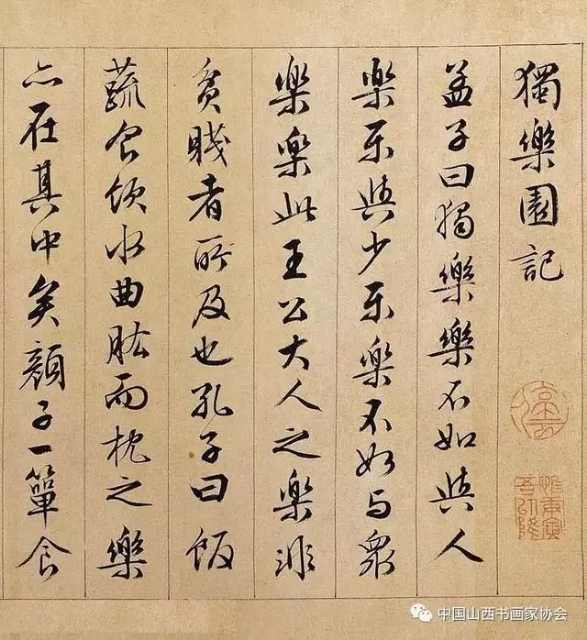 獨樂園記
停雲
惟庚寅吾以降
孟子曰獨樂樂不如與人
樂樂與少樂樂不如与衆
樂樂此王公大人之樂非
貧賤者所及也孔子曰飯
蔬食飲水曲肱而枕之樂
亦在其中矣顏子一簞食
中国山西书画家协会